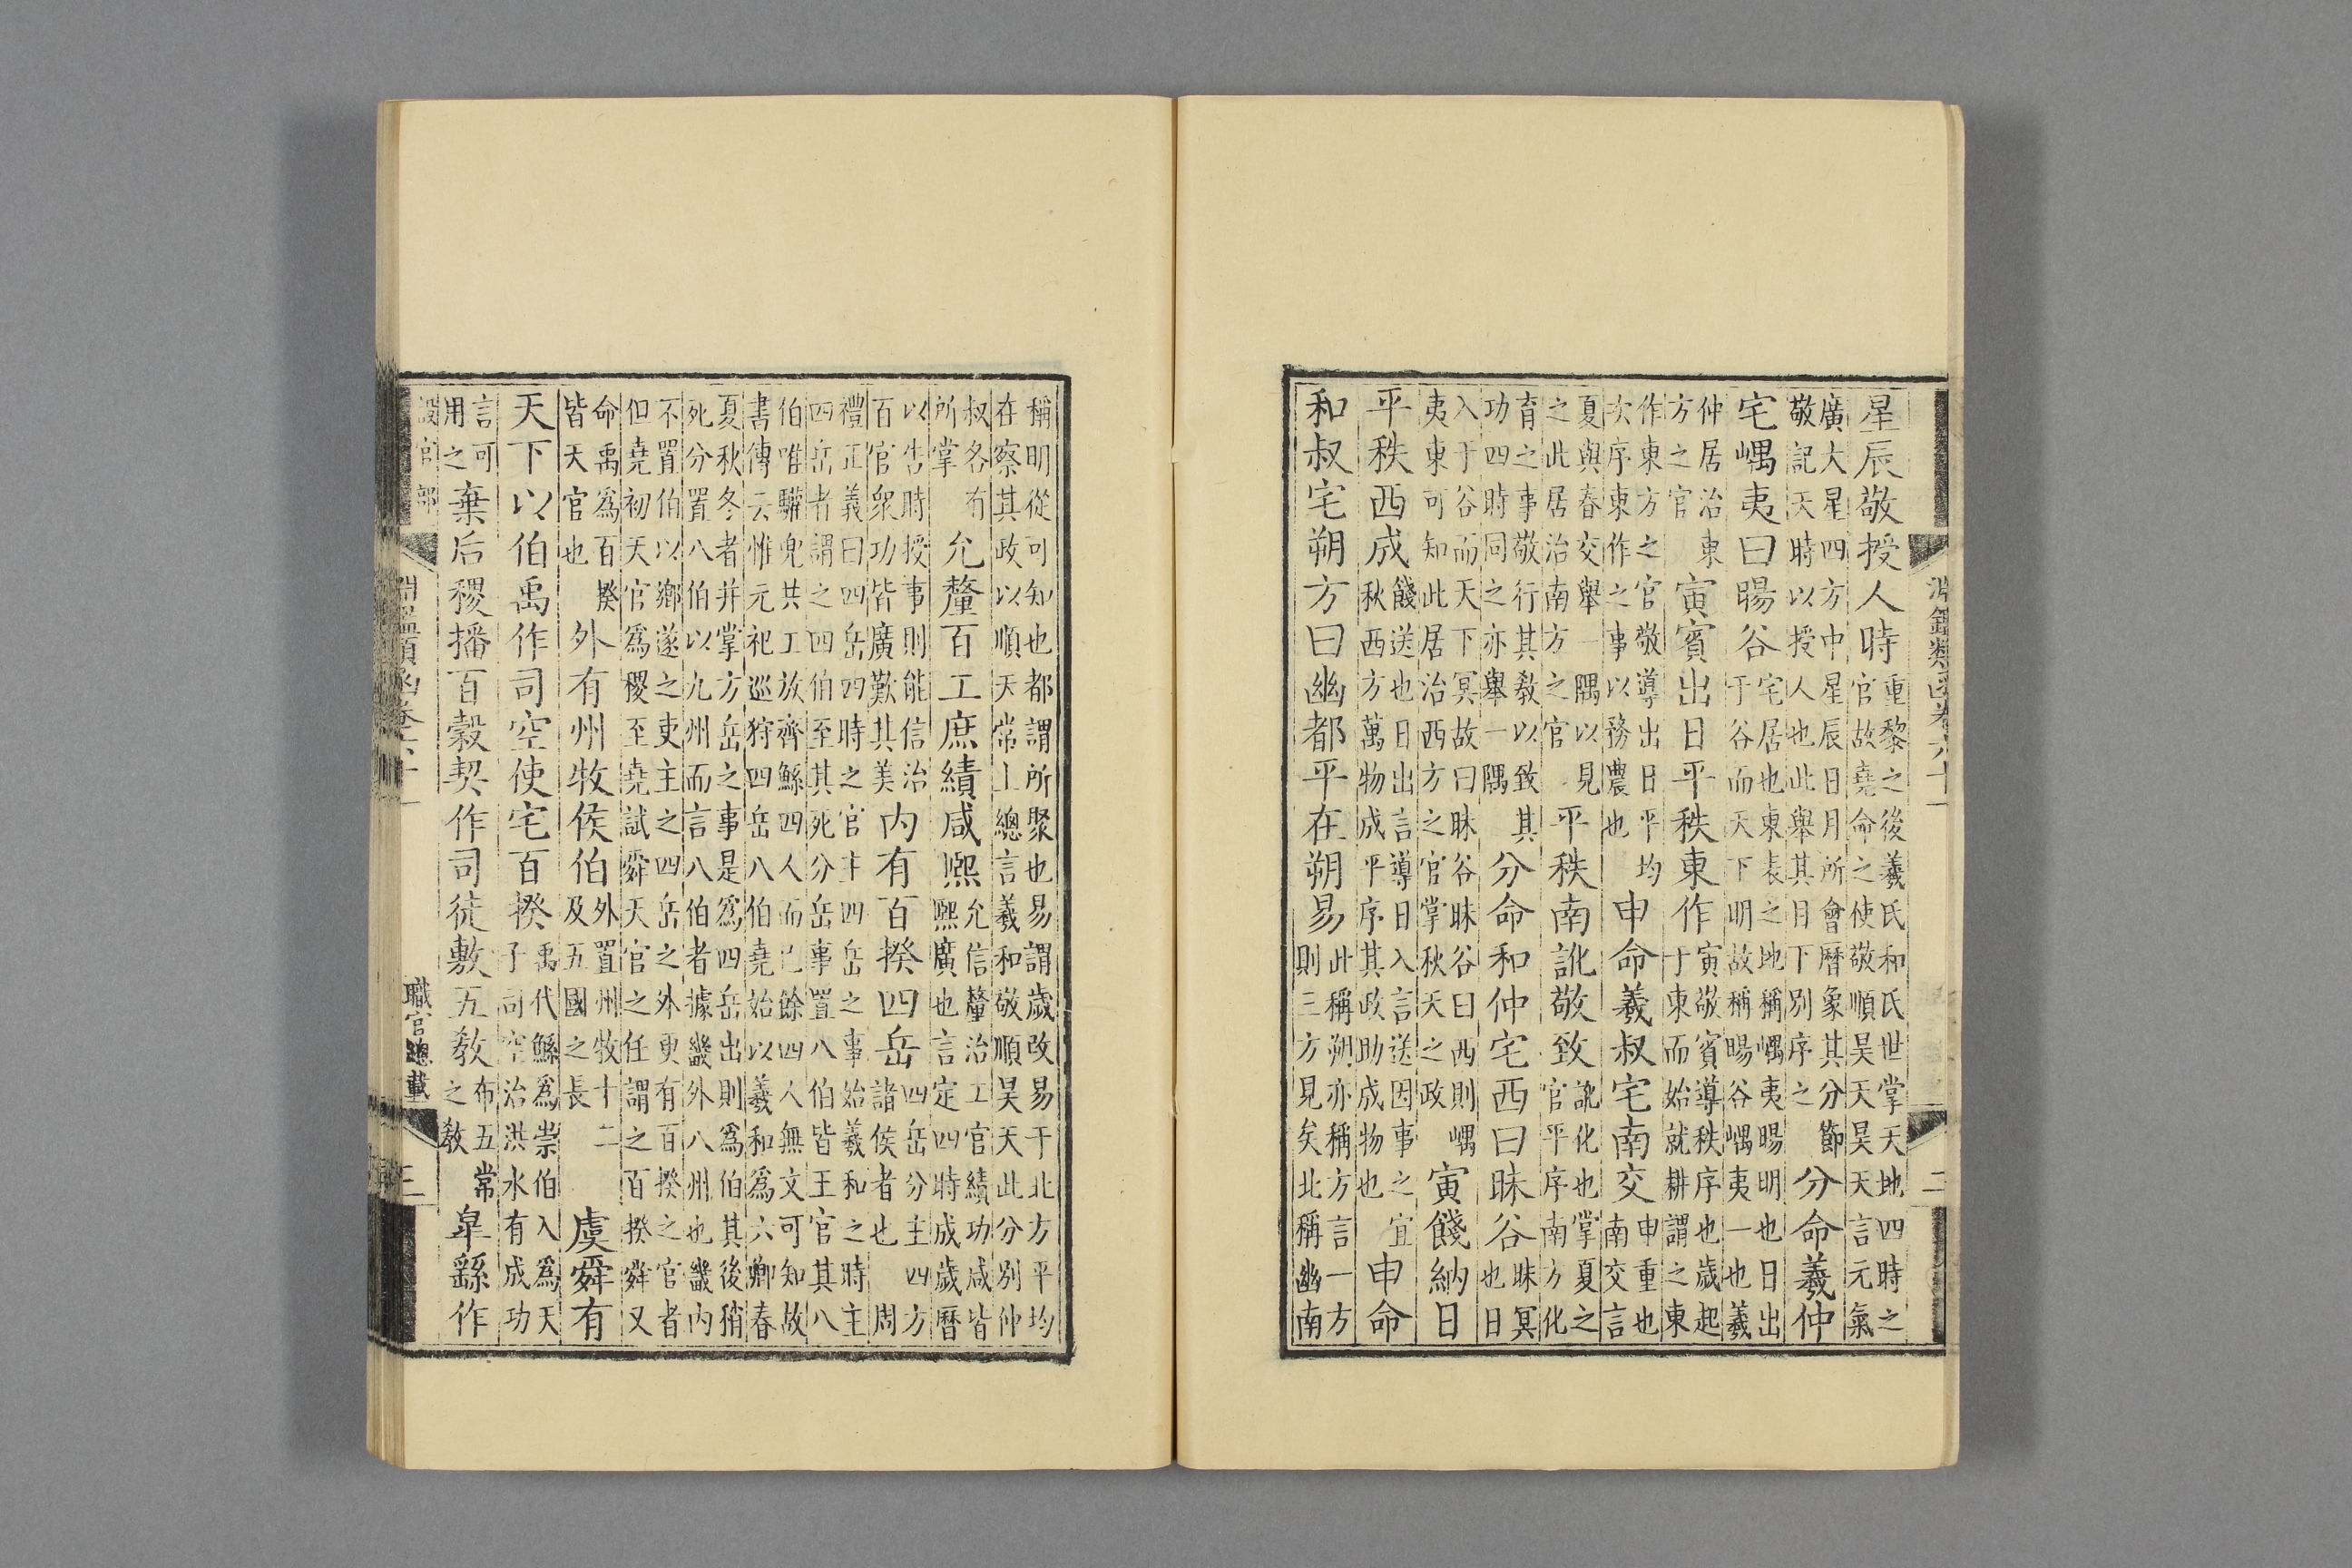 淵鑑類函卷六十一 二
星辰敬授人時重黎之後羲氏和氏世掌天地四時之官故堯命之使敬順昊天昊天言元氣
廣大星四方中星辰日月所會曆象其分節敬記天時以授人也此舉其目下別序之分命羲仲
宅嵎夷曰暘谷宅居也東表之地稱嵎夷暘明也日出于谷而天下明故稱暘谷嵎夷一也羲
仲居治東方之官寅賓出日平秩東作寅敬賓導秩序也歲起于東而始就耕謂之東
作東方之官敬導出日平均次序東作之事以務農也申命羲叔宅南交申重也南交言
夏與春交舉一隅以見之此居治南方之官平秩南訛敬致訛化也掌夏之官平序南方化
育之事敬行其教以致其功四時同之亦舉一隅分命和仲宅西曰昧谷昧冥也日
入于谷而天下冥故曰昧谷昧谷曰西則嵎夷東可知此居治西方之官掌秋天之政寅餞納日
平秩西成餞送也日出言導日入言送因事之宜秋西方萬物成平序其政助成物也申命
和叔宅朔方曰幽都平在朔易此稱朔亦稱方言一方則三方見矣北稱幽南
稱明從可知也都謂所聚也易謂歲改易于北方平均在察其政以順天常上總言羲和敬順昊天此分別仲
叔各有所掌允釐百工庶績咸熙允信釐治工官績功咸皆熙廣也言定四時成歲曆
以告時授事則能信治百官眾功皆廣歎其美內有百揆四岳四岳分主四方諸侯者也周
禮正義曰四岳四時之官主四岳之事始羲和之時主四岳者謂之四伯至其死分岳事置八伯皆王官其八
伯唯驩兜共工放齊鯀四人而已餘四人無文可知故書傳云惟元祀巡狩四岳八伯堯始以羲和爲六卿春
夏秋冬者并掌方岳之事是爲四岳出則爲伯其後稍死分置八伯以九州而言八伯者據畿外八州也畿內
不置伯以鄉遂之吏主之四岳之外更有百揆之官者但堯初天官爲稷至堯試舜天官之任謂之百揆舜又
命禹爲百揆皆天官也外有州牧侯伯外置州牧十二及五國之長虞舜有
天下以伯禹作司空使宅百揆禹代鯀爲崇伯入爲天子司空治洪水有成功
言可用之棄后稷播百穀契作司徒敷五教布五常之教皋繇作
設官部 淵鑑類函卷六十一 職官總載 三